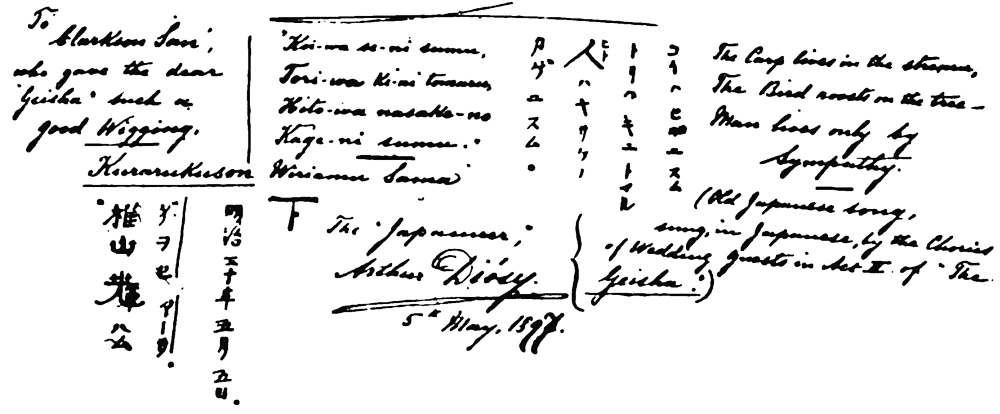 To
'Clarkson San',
who gave the dear
"Geisha" such a
good Wigging.
"Koi-wa se-ni sumu,
Tori-wa ki-ni tomaru,
Hito-wa nasake-no
Kage-ni sumu."
コイハセニスム
トリハキニトマル
人ハナサケノ
カゲニスム。
The Carp lives in the stream,
The Bird roosts on the tree —
Man lives only by
Sympathy.
(Old Japanese song,
sung, in Japanese, by the Chorus
of Wedding Guests in Act II. of "The
Geisha.")
Kurarukuson Wiriamu Sama
下
The "Japaneser,"
Arthur Diósy.
5th May, 1897.
明治三十年五月五日。
ヂヲセアーサ。